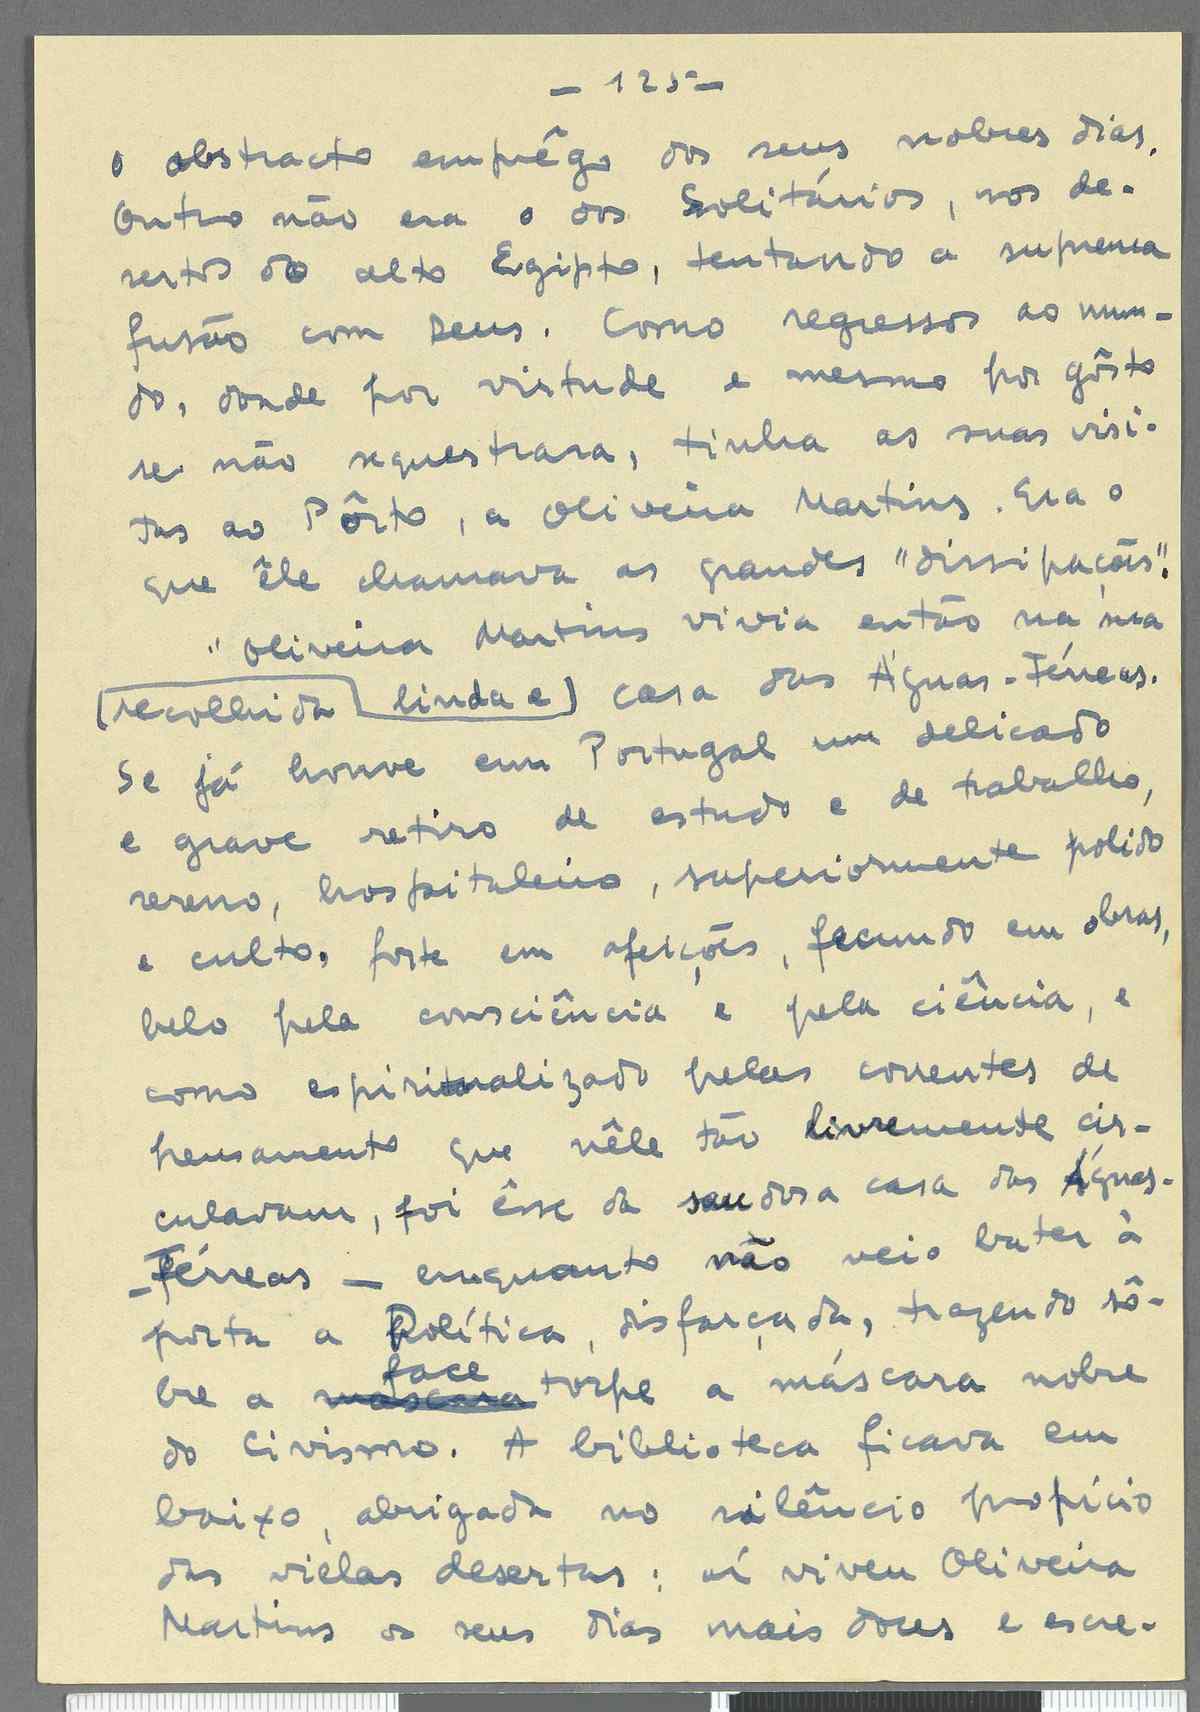 — 125 —
o abstracto emprêgo dos seus nobres dias.
Outro não era o dos Solitários, nos de-
sertos do alto Egipto, tentando a suprema
fusão com Deus. Como regressos ao mun-
do, donde por virtude e mesmo por gôsto
se não sequestrara, tinha as suas visi-
tas ao Pôrto, a Oliveira Martins. Era o
que êle chamava as grandes "dissipações".
"Oliveira Martins vivia então na sua
[recolhida linda e] casa das Águas-Férreas.
Se já houve em Portugal um delicado
e grave retiro de estudo e de trabalho,
sereno, hospitaleiro, superiormente polido
e culto, forte em afeições, fecundo em obras,
belo pela consciência e pela ciência, e
como espiritualizado pelas correntes de
pensamento que nêle tão livremente cir-
culavam, foi êsse da saudosa casa das Águas-
-Férreas — enquanto não veio bater à
porta a Política, disfarçada, trazendo sô-
face
bre a máscara torpe a máscara nobre
do Civismo. A biblioteca ficava em
baixo, abrigada no silêncio propício
das viélas desertas: aí viveu Oliveira
Martins os seus dias mais doces e escre-